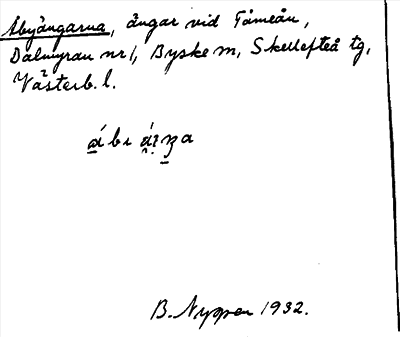 Åbyängarna, ängar vid Tåmeån,
Dalmyran nr 1, Byske m, Skellefteå tg,
Västerb. l.
B. Nyper 1932.